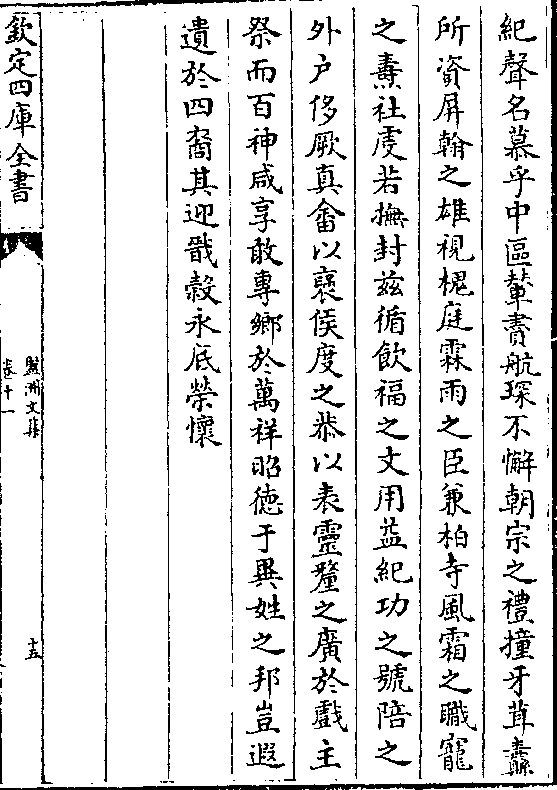 紀聲名慕乎中區輦賮航琛不懈朝宗之禮撞牙茸纛
所資屏翰之雄視槐庭霖雨之臣兼柏寺風霜之職寵
之燾社虔若撫封兹循飲福之文用益紀功之號陪之
外户侈厥真畬以褒侯度之恭以表靈釐之廣於戲主
祭而百神咸享敢專鄉於萬祥昭徳于異姓之邦豈遐
遺於四裔其迎戩穀永底榮懷
欽定四庫全書
盤洲文集
卷十一
十五